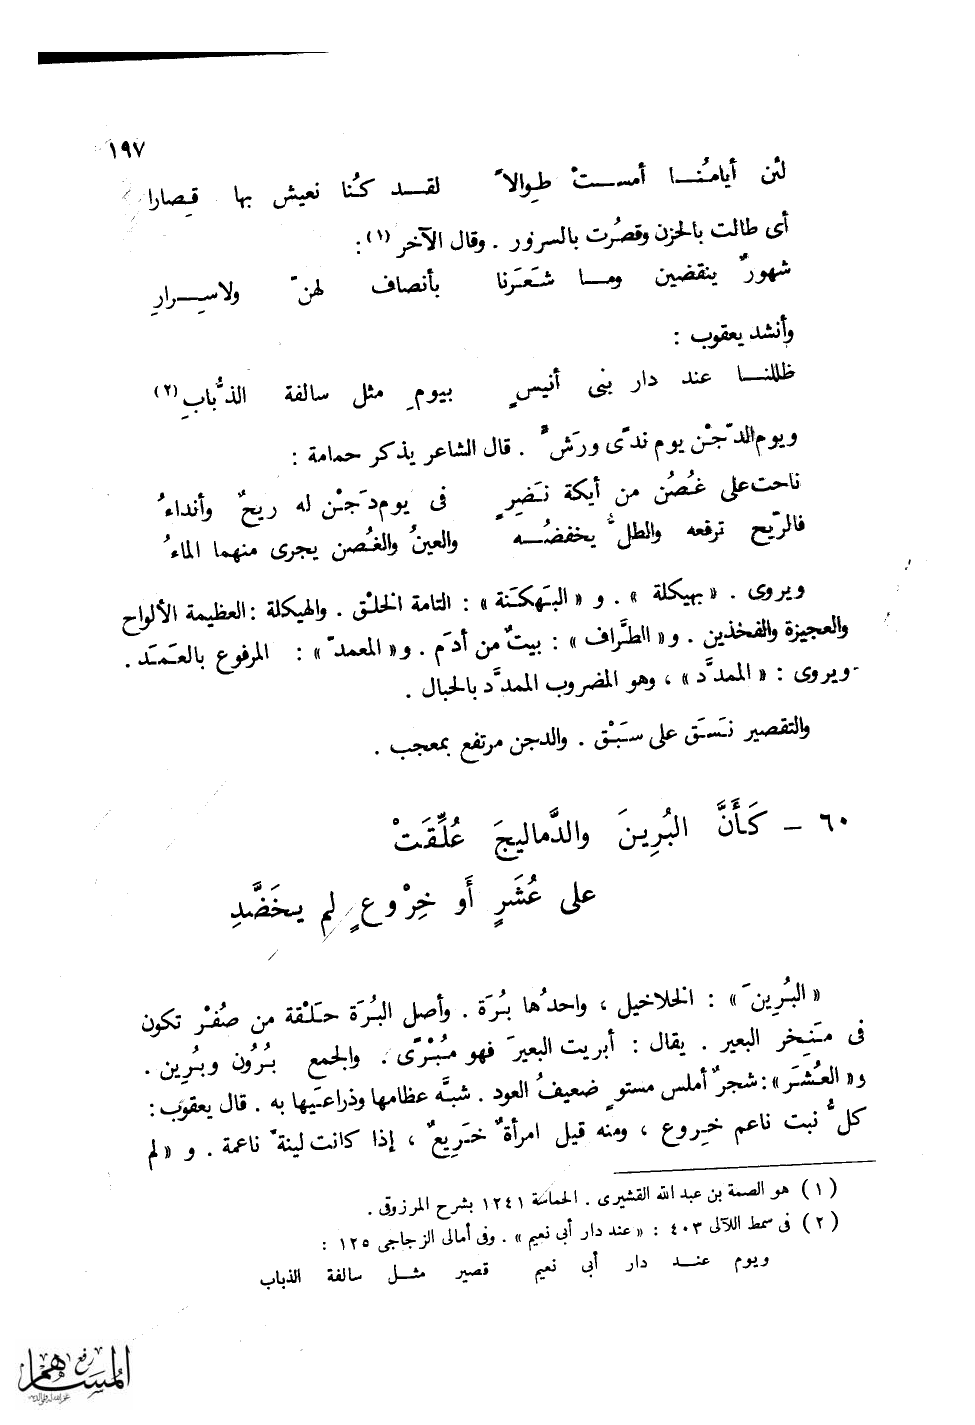 ١٩٧
لئن أيامُنــا أمســتْ طوالاً لقــد كُنا نعيش بها قِصارا
أى طالت بالحزن وقصُرت بالسرور . وقال الآخر (١) :
شهورٌ ينقضين ومــا شَعَرنا بأنصاف لهنّ ولاسِــرارِ
وأنشد يعقوب :
ظللنــا عند دار بنى أنيسٍ بيومٍ مثل سالفة الذُّبابِ (٢)
ويوم الدَّجْن يوم ندًى ورَشٍّ . قال الشاعر يذكر حمامة :
ناحت على غُصُن من أيكة نَضِرٍ فى يوم دَجْن له ريحٌ وأنداءُ
فالرّيح ترفعه والطلُّ يخفضُــه والعينُ والغُصن يجرى منهما الماءُ
ويروى . « بهيكلة » . و « البَهكَنة » : التامة الخلْق . والهيكلة : العظيمة الألواح
والعجيزة والفخذين . و« الطَّراف » : بيتٌ من أدَم . و« المعمدّ » : المرفوع بالعَمَد .
ويروى : « الممدَّد » ، وهو المضروب الممدَّد بالحبال .
والتقصير نَسَق على سَبْق . والدجن مرتفع بمعجب .
٦٠ – كَأَنَّ البُرِينَ والدَّماليجَ عُلِّقَتْ
على عُشَرٍ أَو خِرْوعٍ لم يخَضَّدِ
« البُرِينَ » : الخلاخيل ، واحدُها بُرَة . وأصل البُرَة حَلْقة من صُفْر تكون
فى مَنخِر البعير . يقال : أبريت البعيرَ فهو مُبْرًى . والجمع بُرُون وبُرِين .
و« العُشَر » : شجرٌ أملس مستوٍ ضعيفُ العود . شبَّه عظامها وذراعَيها به . قال يعقوب :
كلُّ نبت ناعم خِروع ، ومنه قيل امرأةٌ خَرِيعٌ ، إذا كانت لينةً ناعمة . و « لم
(١) هو الصمة بن عبد الله القشيرى . الحماسة ١٢٤١ بشرح المرزوقى .
(٢) فى سمط اللآلى ٤٠٣ : « عند دار أبى نعيم » . وفى أمالى الزجاجى ١٢٥ :
ويوم عنــد دار أبى نعيم قصير مثــل سالفة الذباب